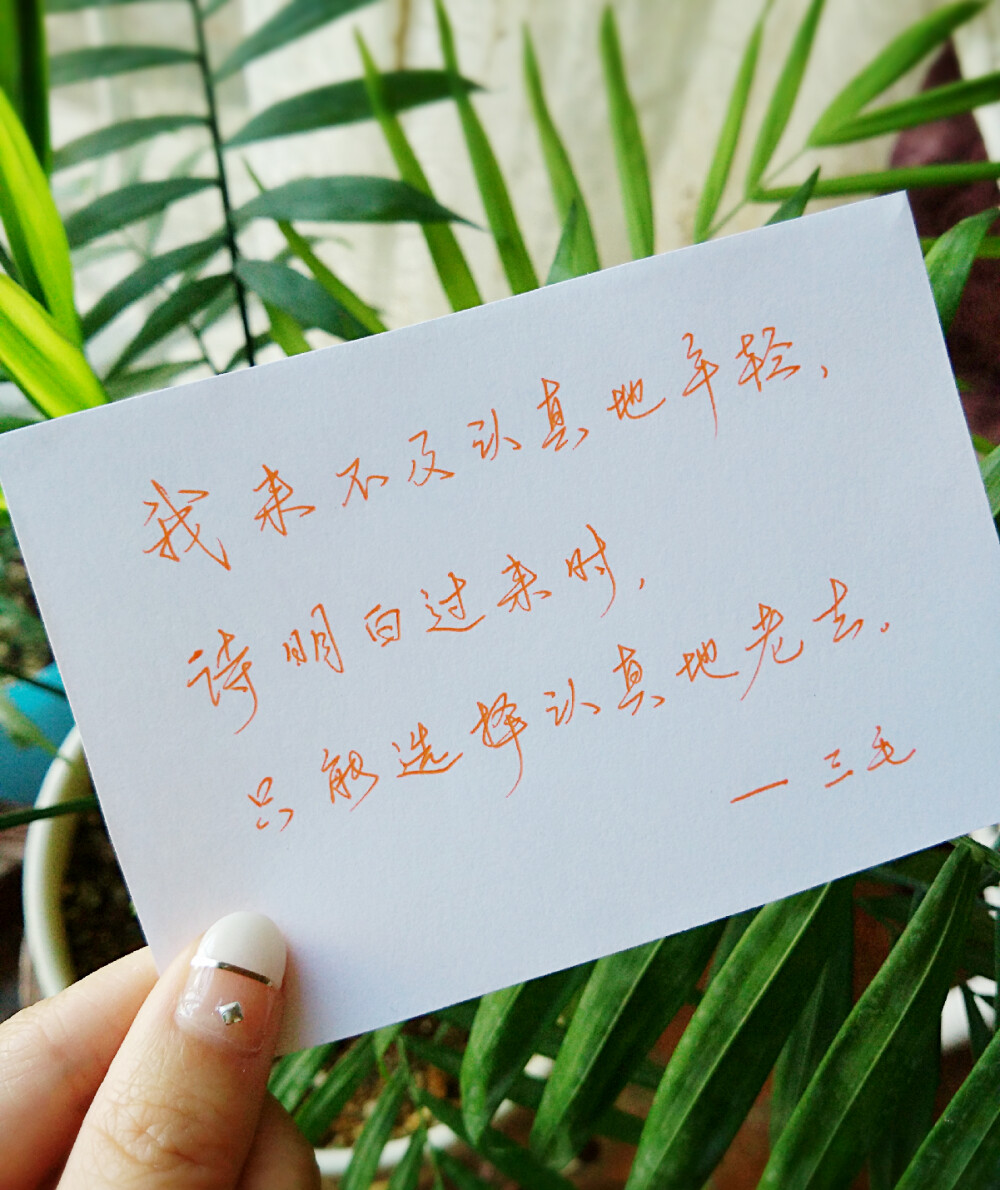 我来不及认真地年轻，
诗明白过来时，
只能选择认真地老去。
—三毛